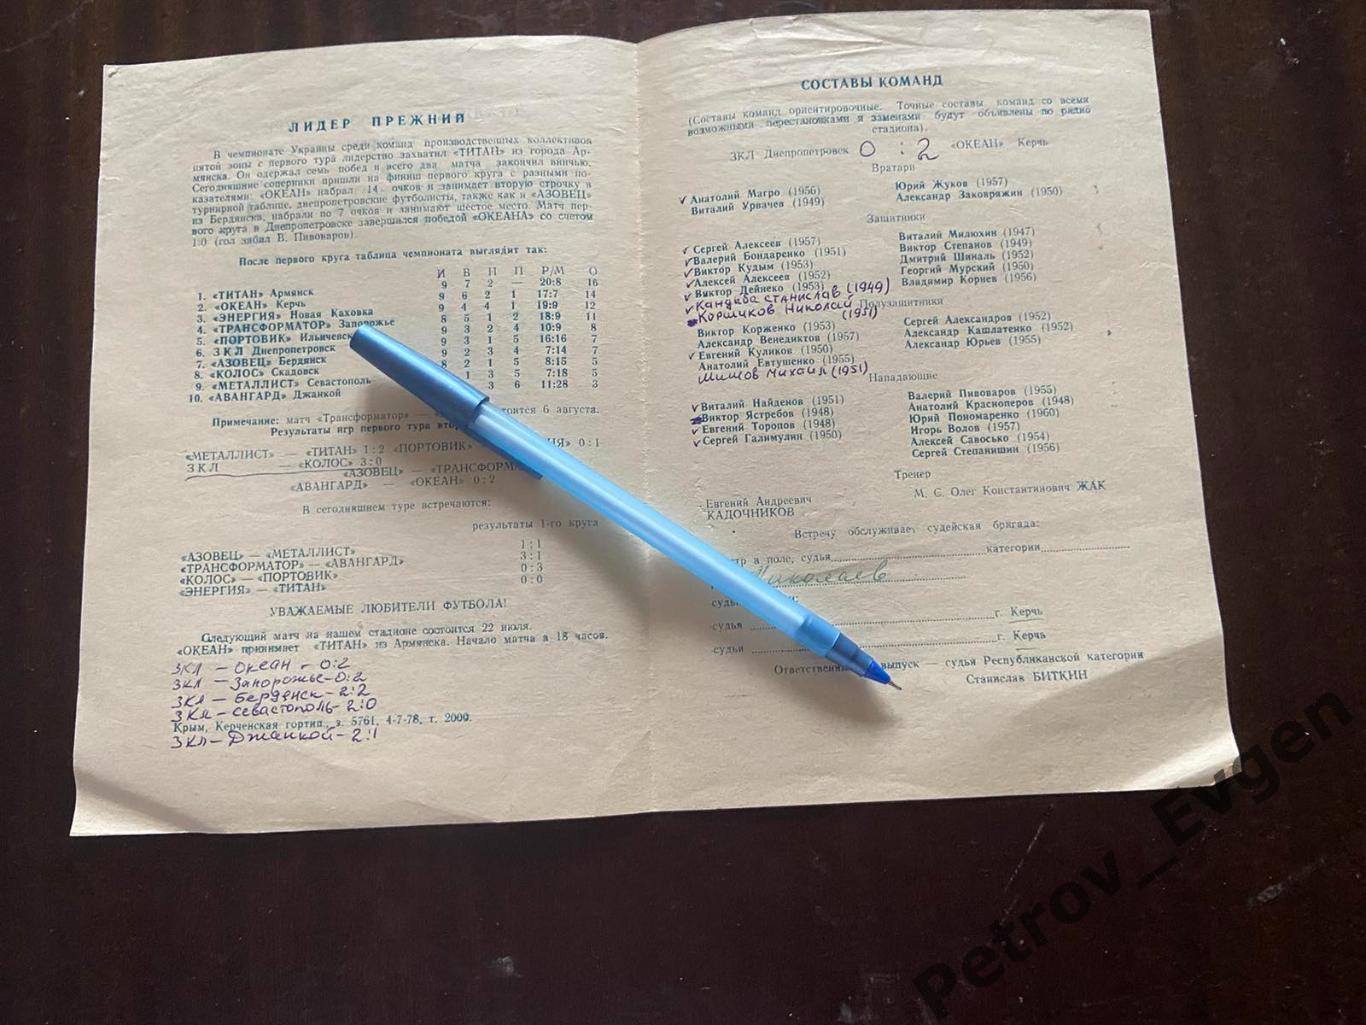 ЛИДЕР ПРЕЖНИЙ
В чемпионате Украины среди команд производственных коллективов
пятой зоны с первого тура лидерство захватил «ТИТАН» из города Ар-
мянска. Он одержал семь побед и всего два матча закончил вничью.
Сегодняшние соперники пришли на финиш первого круга с разными по-
казателями: «ОКЕАН» набрал 14 очков и занимает вторую строчку в
турнирной таблице, днепропетровские футболисты, также как и «АЗОВЕЦ»
из Бердянска, набрали по 7 очков и занимают шестое место. Матч пер-
вого круга в Днепропетровске завершился победой «ОКЕАНА» со счетом
1:0 (гол забил В. Пивоваров).
После первого круга таблица чемпионата выглядит так:
И В Н П Р/М О
1. «ТИТАН» Армянск 9 7 2 — 20:8 16
2. «ОКЕАН» Керчь 9 6 2 1 17:7 14
3. «ЭНЕРГИЯ» Новая Каховка 9 4 4 1 19:9 12
4. «ТРАНСФОРМАТОР» Запорожье 8 5 1 2 18:9 11
5. «ПОРТОВИК» Ильичевск 9 3 2 4 10:9 8
6. ЗКЛ Днепропетровск 9 3 1 5 16:16 7
7. «АЗОВЕЦ» Бердянск 9 2 3 4 7:14 7
8. «КОЛОС» Скадовск 8 2 1 5 8:15 5
9. «МЕТАЛЛИСТ» Севастополь 1 3 5 7:18 5
10. «АВАНГАРД» Джанкой 3 6 11:28 3
Примечание: матч «Трансформатор» — состоится 6 августа.
Результаты игр первого тура
«МЕТАЛЛИСТ» — «ТИТАН» 1:2 «ПОРТОВИК» 0:1
ЗКЛ — «КОЛОС» 3:0
«АЗОВЕЦ» —
«АВАНГАРД» — «ОКЕАН» 0:2
В сегодняшнем туре встречаются:
результаты 1-го круга
«АЗОВЕЦ» — «МЕТАЛЛИСТ» 1:1
«ТРАНСФОРМАТОР» — «АВАНГАРД» 3:1
«КОЛОС» — «ПОРТОВИК» 0:3
«ЭНЕРГИЯ» — «ТИТАН» 0:0
УВАЖАЕМЫЕ ЛЮБИТЕЛИ ФУТБОЛА!
Следующий матч на нашем стадионе состоится 22 июля.
«ОКЕАН» принимает «ТИТАН» из Армянска. Начало матча в 18 часов.
ЗКЛ – Океан – 0:2
ЗКЛ – Запорожье – 0:2
ЗКЛ – Берденск – 2:2
ЗКЛ – Севастополь – 2:0
Крым, Керченская гортип., з. 5761, 4-7-78, т. 2000.
ЗКЛ – Джанкой – 2:1
СОСТАВЫ КОМАНД
(Составы команд ориентировочные. Точные составы команд со всеми
возможными перестановками и заменами будут объявлены по радио
стадиона).
ЗКЛ Днепропетровск 0 : 2 «ОКЕАН» Керчь
Вратари
Анатолий Магро (1956)
Виталий Урвачев (1949)
Юрий Жуков (1957)
Александр Заковряжин (1950)
Защитники
Сергей Алексеев (1957)
Валерий Бондаренко (1951)
Виктор Кудым (1953)
Алексей Алексеев (1952)
Виктор Дейнеко (1953)
Кандыба Станислав (1949)
Коршиков Николай (1951)
Виталий Милюхин (1947)
Виктор Степанов (1949)
Дмитрий Шиналь (1952)
Георгий Мурский (1950)
Владимир Корнев (1956)
Полузащитники
Виктор Корженко (1953)
Александр Венедиктов (1957)
Евгений Куликов (1950)
Анатолий Евтушенко (1955)
Шишов Михаил (1951)
Сергей Александров (1952)
Александр Кашлатенко (1952)
Александр Юрьев (1955)
Нападающие
Виталий Найденов (1951)
Виктор Ястребов (1948)
Евгений Торопов (1948)
Сергей Галимулин (1950)
Валерий Пивоваров (1955)
Анатолий Красноперов (1948)
Юрий Пономаренко (1960)
Игорь Волов (1957)
Алексей Савосько (1954)
Сергей Степанишин (1956)
Тренер
Евгений Андреевич
КАДОЧНИКОВ
М. С. Олег Константинович ЖАК
Встречу обслуживает судейская бригада:
в поле, судья категории
Николаев
судья г. Керчь
судьи г. Керчь
Ответственный выпуск — судья Республиканской категории
Станислав БИТКИН
Petrov_Evgen